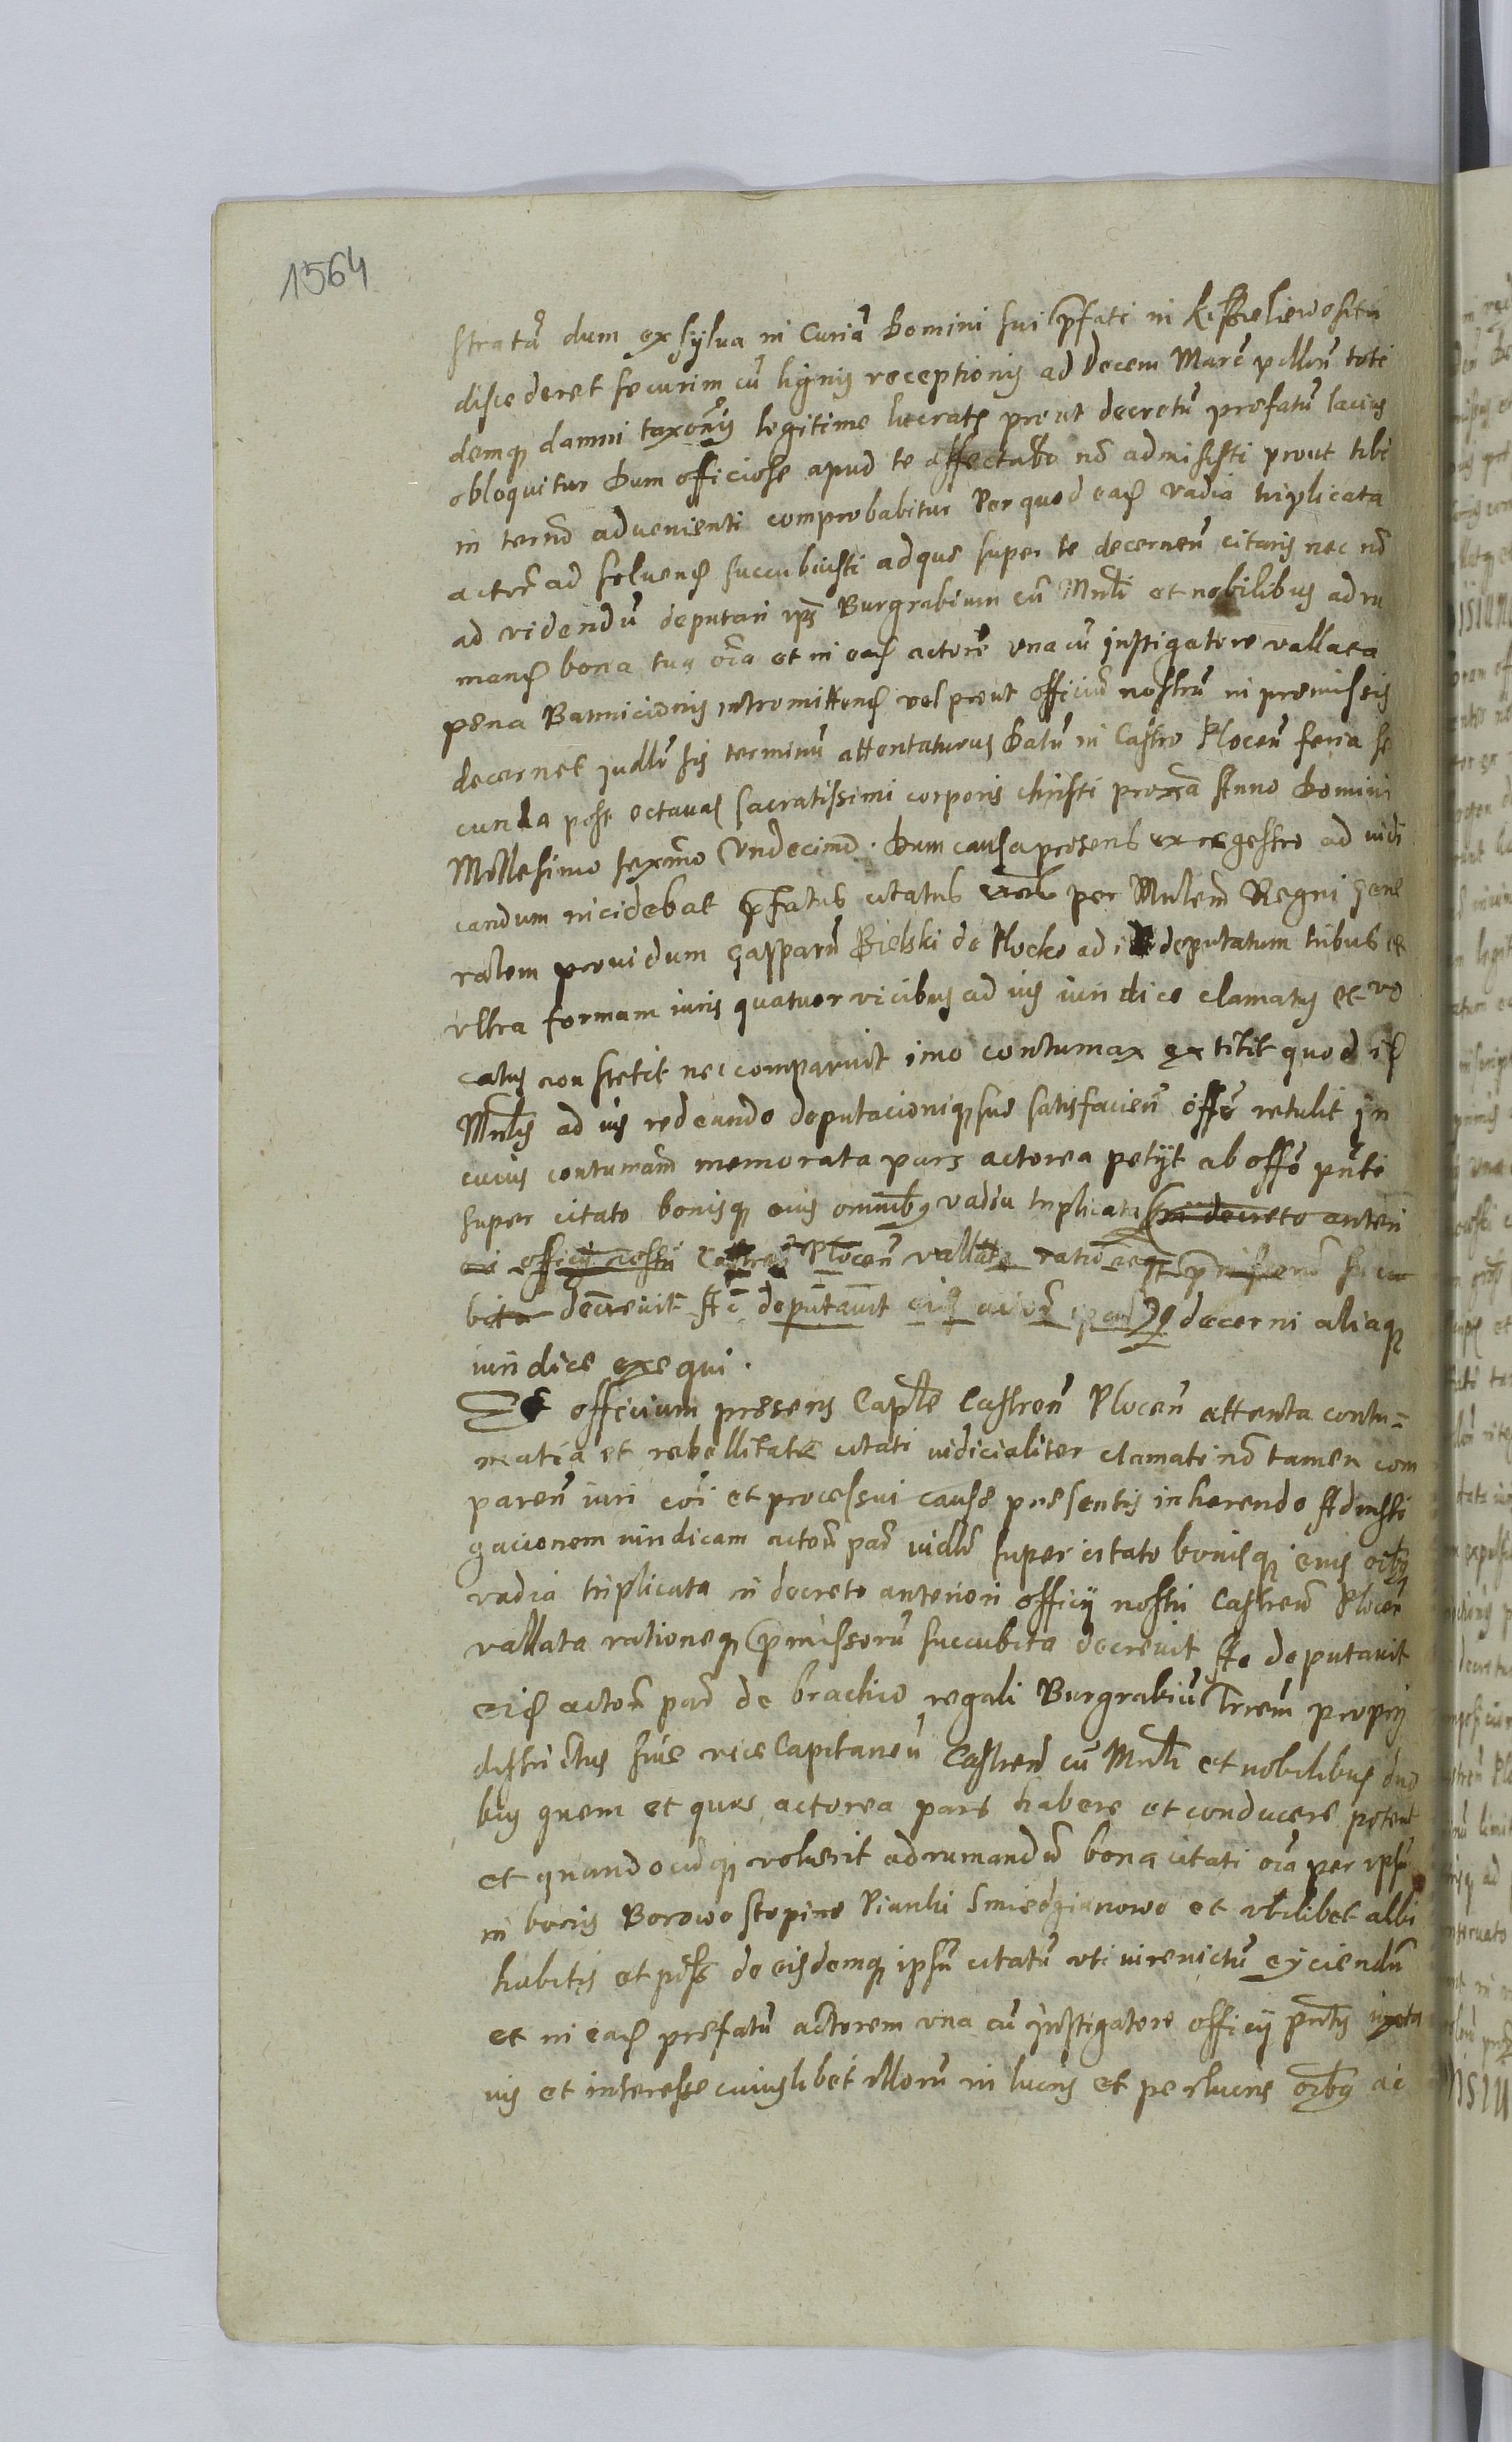 1564
stratā dum ex sylua in Curiā Domini sui pfati in Kisielewo sitū
discederet securim cū lignis receptionis ad decem Marc pollīn toti
demq damni taxoñis legitime lucrate prout decretū prefatū lacius
obloquitur Dum officiose apud te affectabo nō admisisti prout tibi
in termō aduenienti comprobabitur Per quod eas vadia triplicata
actori ad soluens succubuisti adque super te decernen citaris nec nō
ad videndū deputari Burgrabium cū Mnlī et nobilibus ad
mans bona tua oīa et in eas actorē vna cū Instigatore vallata
pena Bannicionis intromittens vel prout officiū nostrū in premissis
decernet sis terminū attentaturus Datū in Castro Plocen feria se
cunda post octauas sacratissimi corporis christi proxa Anno Domini
Millesimo sexmo Undecimo. Dum causa presens ex regestro ad iudi
candum incidebat pfatus citatus per Mnlem Regni gene
ralem prouidum Gasparū Bielski de Plocko ad deputatum tribus et
vltra formam iuris quatuor vicibus ad ius iuridice clamatus et vo
catus non stetit nec comparuit imo contumax extitit quod is
Mnlis ad ius redeundo deputacioniq sue satisfacien offō retulit In
cuius contumam memorata pars actorea petijt ab offō pnti
super citato bonisq eius omnibq vadia triplicata in decreto anteri
ori officij nostri Castren Plocen vallata rationeq pmissorū succu
bita decreuit Ac deputauit decerni aliaq
iuridice exequi.
Et officium presens Captle Castren Plocen attenta contu=
matia et rebellitate citati iudicialiter clamati nō tamen com
paren iuri cōi et processui cause presentis inherendo Ad insti
gacionem iuridicam actoī par iudlī super citato bonisq eius oibq
vadia triplicata in decreto anteriori officij nostri Castren Plocen
vallata rationeq pmissorū succubita decreuit Ac deputauit
eis actoī par de brachio regali Burgrabiū Trrem proprij
districtus siue vice Capitaneū Castren cū Mnlī et nobilibus duo
bus quem et quos actorea pars habere et conducere poterit
et quandocūq voluerit ad rumandū bona citati oīa per ipsū
in bonis Borowo Stopino Pianki Smiedzianowo et vbilibet alibi
habitis et poss de eisdemq ipsū citatū vti iurevictū eijciendū
et in eas prefatū actorem vna cū Instigatore officij pntis iuxta
ius et interesse cuiuslibet illorū in lucris et perlucris oibq ac